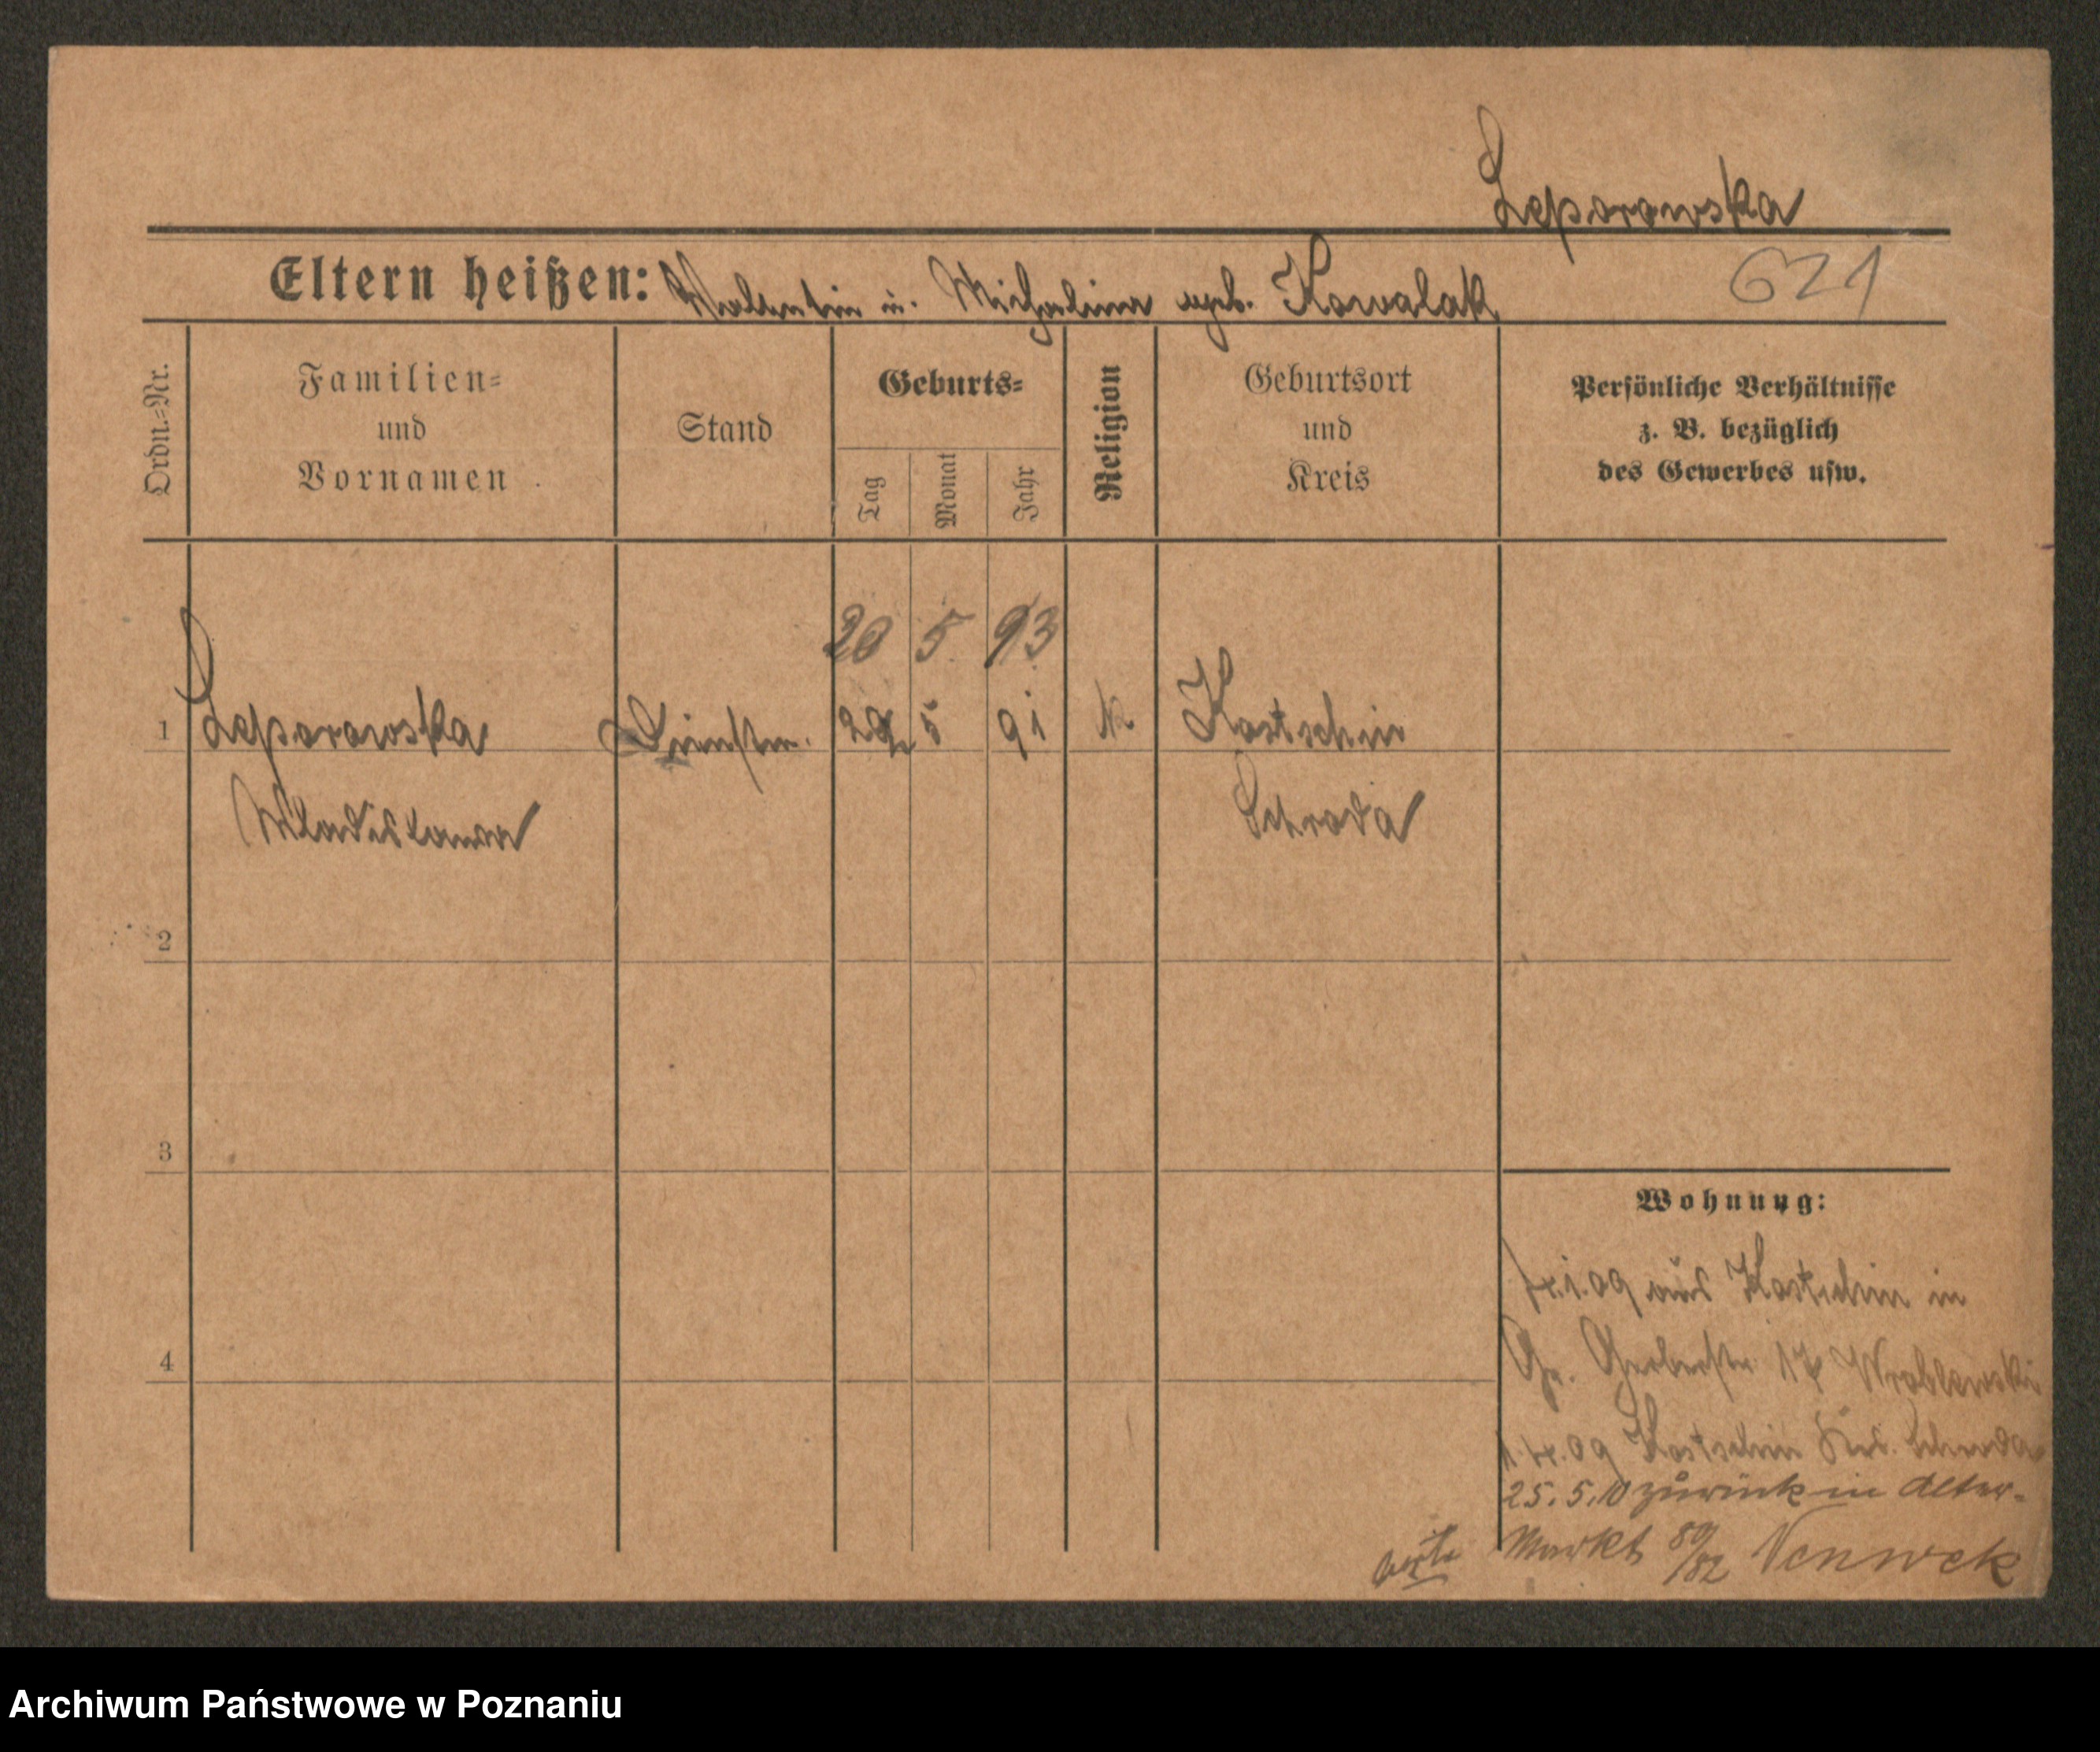 Leporowska
Eltern heißen: Valentin u. Michalina geb. Kowalak
621
Ordn.=Nr.
Familien=
und
Vornamen
Stand
Geburts=
Tag
Monat
Jahr
Religion
Geburtsort
und
Kreis
Persönliche Verhältnisse
z. B. bezüglich
des Gewerbes usw.
20 5 93
1 Leporowska Dienstm. 5 91 k Kostschin
Wladislawa Schroda
2
3
4
Wohnung:
4.1.09 aus Kostschin in
Gr. Gerberstr. 17 Wroblewski
1.4.09 Kostschin Krs. Schroda
25.5.10 zurück in Alter-
Markt 80/82
Archiwum Państwowe w Poznaniu